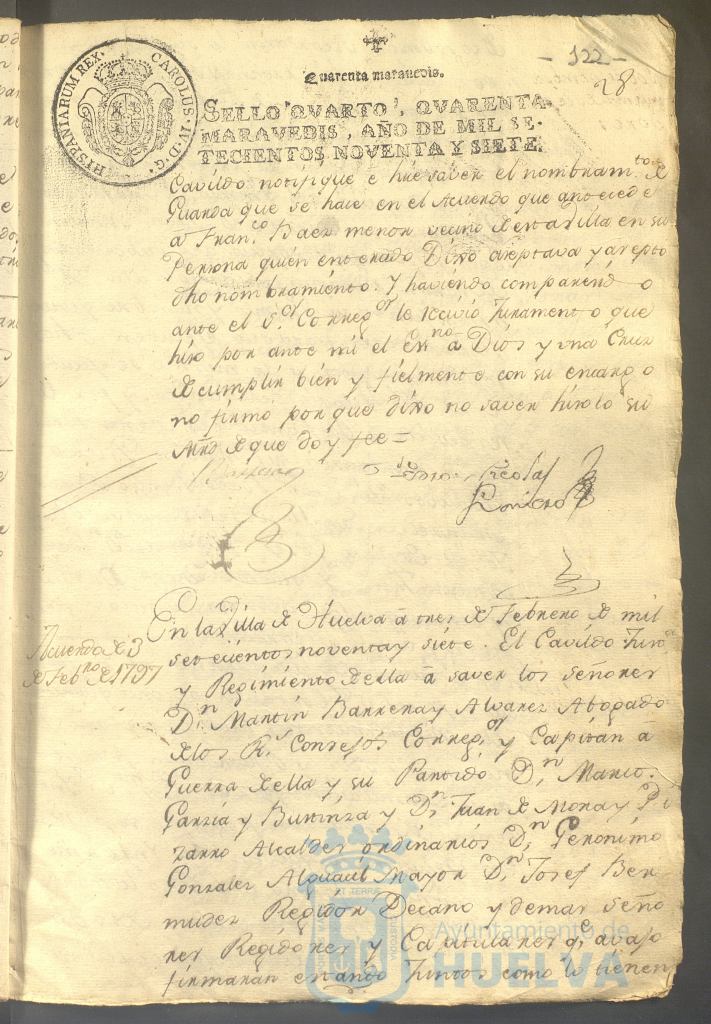 - 122 -
28
Quarenta marauedis.
HISPANIARUM REX. CAROLUS. IV. D. G.
SELLO QVARTO, QVARENTA
MARAVEDIS, AÑO DE MIL SE-
TECIENTOS NOVENTA Y SIETE.
Cavildo notifique e hice saver el nombram.to de
Guarda que se hace en el Acuerdo que antecede
a Fran.co Baez menor vecino de esta villa en su
Persona quien enterado Dixo aceptava y acepto
dho nombramiento. Y haviendo comparendo
ante el S.or Correg.or le recivio Juramento que
hizo por ante mi el Esno a Dios y una Cruz
de cumplir bien y fielmente con su encargo
no firmo por que dixo no saver hizolo su
Mrd de que doy fee =
Nicolas
Acuerdo de 3
de Feb.ro de 1797
En la Villa de Huelva a tres de Febrero de mil
setecientos noventa y siete. El Cavildo Just.a
y Regimiento de ella a saver los señores
D.n Martin Barrena y Alvarez Abogado
de los R.s Consejos Correg.or y Capitan a
Guerra de ella y su Partido D.n Marcos
Garzia y y D.n Juan de Mora y Pi
zarro Alcaldes ordinarios D.n Geronimo
Gonzalez Alguacil Mayor D.n Josef Ber
mudez Regidor Decano y demas seño
res Regidores y Capitulares q.e avajo
firmaran estando Juntos como lo tienen
Ayuntamiento de
HUELVA